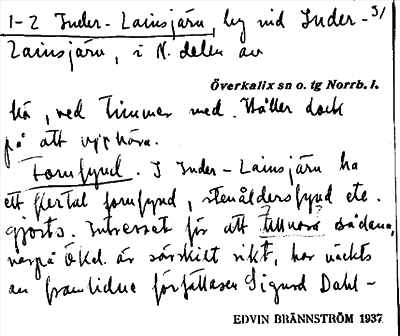 1-2 Inder-Lainsjärn, by vid Inder- 31
Lainsjärn, i N. delen av
Överkalix sn o. tg Norrb. l.
hä, ved timmer med. Håller dock
på att upphöra.
Fornfynd. I Inder-Lainsjärn ha
ett flertal fornfynd, stenåldersfynd etc.
gjorts. Intresset för att tillvara sådana,
varpå Ökd. är särskilt rikt, har väckts
av framlidne författaren Sigurd Dahl-
EDVIN BRÄNNSTRÖM 1937